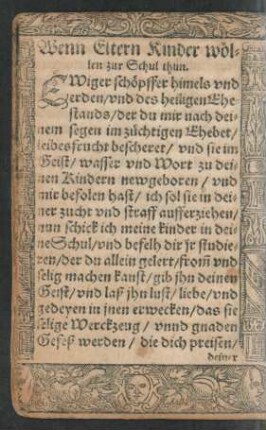 Wenn Eltern Kinder wöl-
len zur Schul thun.
EWiger schöpffer himels vnd
erden/vnd des heiligen Ehe
stands/der du mir nach dei-
nem segen im züchtigen Ehebet/
leibesfrucht bescheret/ vnd sie im
Geist/ wasser vnd Wort zu dei-
nen Kindern newgeboren / vnd
mir befolen hast/ ich sol sie in dei-
ner zucht vnd straff aufferziehen/
nun schick ich meine kinder in dei-
ne Schul/vnd befelh dir jr studie-
ren/der du allein gelert/from̃ vnd
selig machen kanst/ gib jhn deinen
Geist/vnd laß jhn lust/ liebe/vnd
gedeyen in jnen erwecken/das sie
selige Werckzeug / vnnd gnaden
Geseß werden / die dich preisen/
deiner